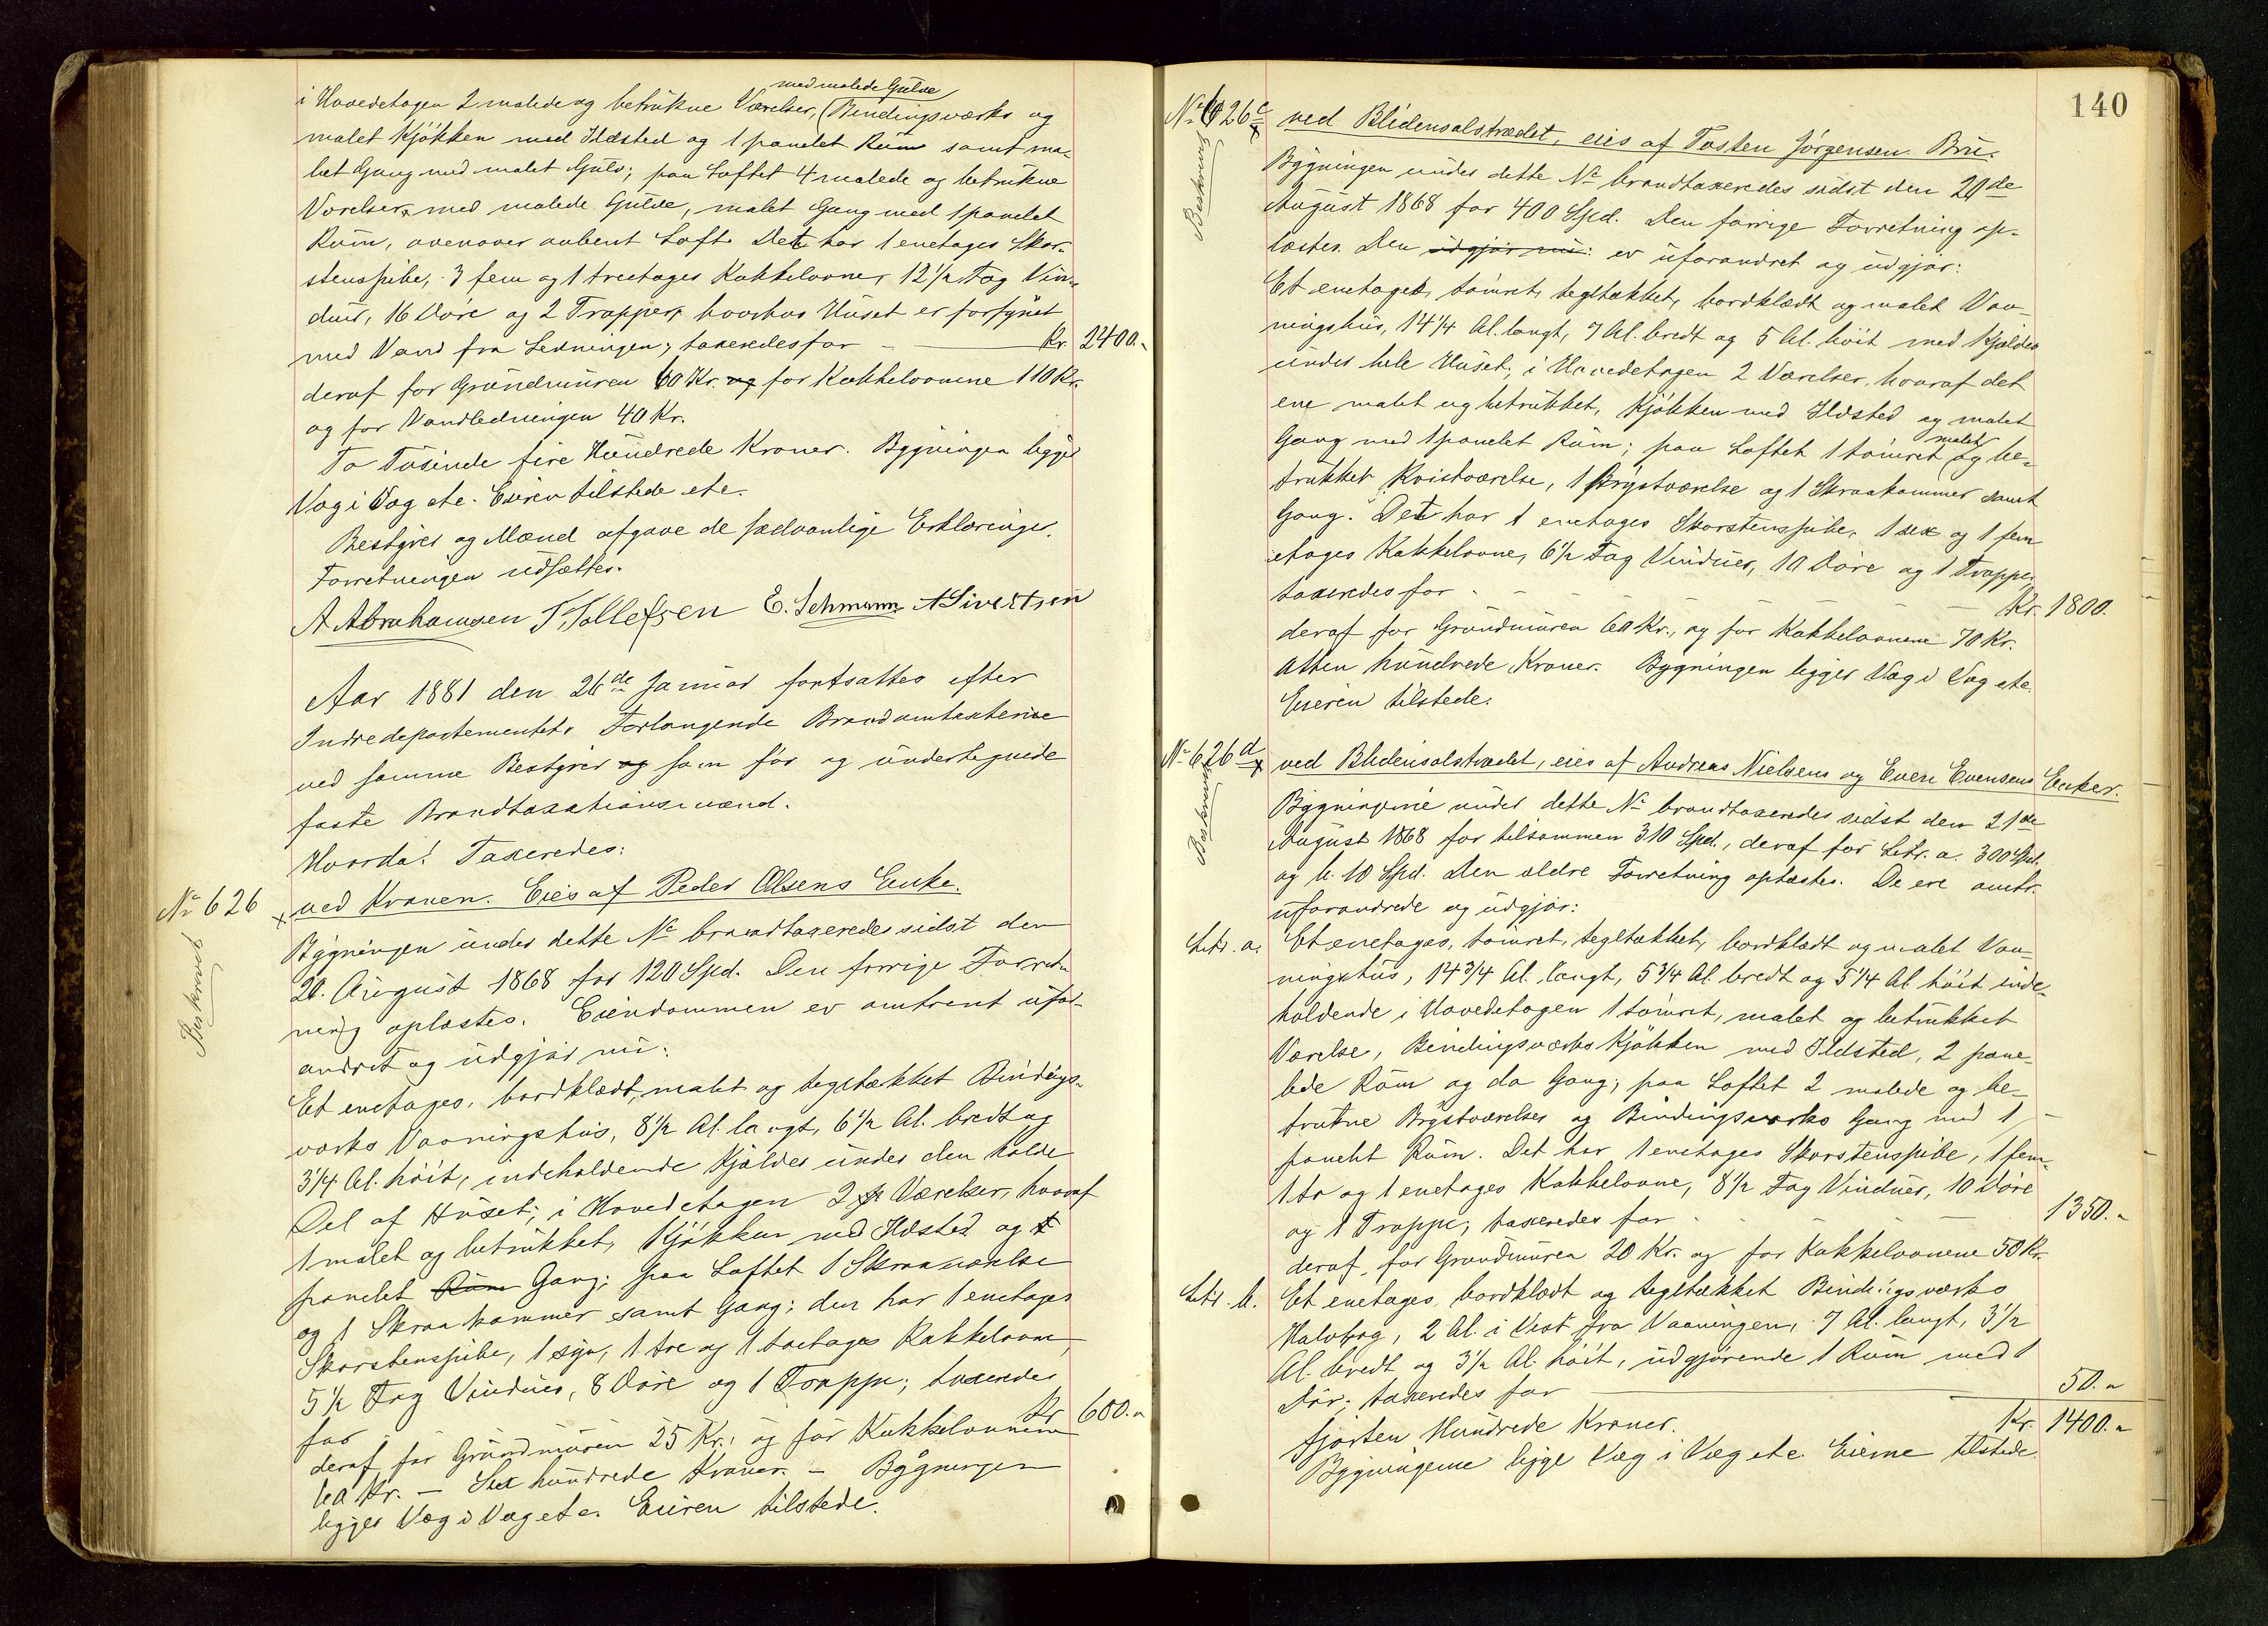 i Hovedetagen 2 malede og betrukne Værelser, (Bindingsværks og
med malede Gulve
malet Kjøkken med Ildsted og 1 panelet Rum samt ma-
let Gang med malet Gulv; paa Loftet 4 malede og betrukne
Værelser med malede Gulve, malet Gang med 1 panelet
Rum, ovenover aabent Loft. Det har 1 enetages Skor-
stenspibe, 3 fem og 1 treetages Kakkelovne, 12 1/2 Fag Vin-
duer, 16 Døre og 2 Trapper, hvorhos Huset er forsynet
med Vand fra Ledningen; taxeredes for – Kr. 2400.-
deraf for Grundmuren 60 Kr. og for Kakkelovnene 110 Kr.
og for Vandledningen 40 Kr.
To Tusinde fire Hundrede Kroner. Bygningen ligger
Væg i Væg etc. Eieren tilstede etc.
Bestyrer og Mænd afgave de sædvanlige Erklæringer.
Forretningen udsættes.
A Abrahamsen T. Tollefsen E. Lehmann A Sivertsen
Aar 1881 den 26de Januar fortsattes efter
Indredepartementets Forlangende Brandomtaxterne
ved samme Bestyrer og som før og undertegnede
faste Brandtaxationsmænd.
Hvorda! Taxeredes:
No 626
ved Kranen. Eies af Peder Olsens Enke.
Beskrevet
Bygningen under dette No brandtaxeredes sidst den
20. August 1868 for 120 Spd. Den forrige Forret-
ning oplæstes. Eiendommen er omtrent ufor-
andret og udgjør nu:
Et enetages, bordklædt, malet og tegltækket Bindings-
værks Vaaningshus, 8 1/2 Al. langt, 6 1/2 Al. bredt og
3 1/4 Al. høit, indeholdende Kjælder under den halve
Del af Huset; i Hovedetagen 2 Værelser, hvoraf
1 malet og betrukket, Kjøkken med Ildsted og
panelet Rum Gang; paa Loftet 1 Skraaværelse
og 1 Skraakammer samt Gang; den har 1 enetages
Skorstenspibe, 1 syv, 1 tre og 1 toetages Kakkelovne,
5 1/2 Fag Vinduer, 8 Døre og 1 Trappe; taxeredes
for Kr. 600.-
deraf for Grundmuren 25 Kr. og for Kakkelovnene
60 Kr. – Sex hundrede Kroner. – Bygningen
ligger Væg i Væg etc. Eieren tilstede.
140
No 626c
ved Blidensolstrædet, eies af Tosten Jørgensen Bru.
Beskrevet
Bygningen under dette No brandtaxeredes sidst den 20de
August 1868 for 400 Spd. Den forrige Forretning op-
læstes. Den udgjør nu: er uforandret og udgjør:
Et enetages, tømret, tegltækket, bordklædt og malet Vaa-
ningshus, 14 1/4 Al. langt, 7 Al. bredt og 5 Al. høit med Kjælder
under hele Huset; i Hovedetagen 2 Værelser, hvoraf det
ene malet og betrukket, Kjøkken med Ildsted og malet
Gang med 1 panelet Rum; paa Loftet 1 tømret og be-
malet
trukket Kvistværelse, 1 Brystværelse og 1 Skraakammer samt
Gang. Det har 1 enetages Skorstenspibe, 1 sex og 1 fem
etages Kakkelovne, 6 1/2 Fag Vinduer, 10 Døre og 1 Trappe,
taxeredes for – Kr. 1800.
deraf for Grundmuren 60 Kr., og for Kakkelovnene 70 Kr.
Atten hundrede Kroner. Bygningen ligger Væg i Væg etc.
Eieren tilstede.
No 626d
ved Blidensolstrædet, eies af Andreas Nielsens og Even Evensens Enker.
Beskrevet
Bygningerne under dette No brandtaxeredes sidst den 21de
August 1868 for tilsammen 310 Spd., deraf for Litr. a. 300 Spd.
og b. 10 Spd. Den ældre Forretning oplæstes. De ere omtr.
uforandrede og udgjør:
Litr. a. Et enetages, tømret, tegltækket, bordklædt og malet Vaa-
ningshus, 14 3/4 Al. langt, 5 3/4 Al. bredt og 5 1/4 Al. høit inde-
holdende i Hovedetagen 1 tømret, malet og betrukket
Værelse, Bindingsværks Kjøkken med Ildsted, 2 pane-
lede Rum og do Gang; paa Loftet 2 malede og be-
trukne Brystværelser og Bindingsværks Gang med 1
panelet Rum. Det har 1 enetages Skorstenspibe, 1 fem,
1 to og 1 enetages Kakkelovne, 8 1/2 Fag Vinduer, 10 Døre
og 1 Trappe; taxeredes for – 1350.-
deraf for Grundmuren 20 Kr. og for Kakkelovnene 50 Kr.
Litr. b. Et enetages bordklædt og tegltækket Bindingsværks
Halvtag, 2 Al. i Vest fra Vaaningen, 7 Al. langt, 3 1/2
Al. bredt og 3 1/2 Al. høit, udgjørende 1 Rum med 1
Dør; taxeredes for – 50.-
Kr. 1400.-
fjorten Hundrede Kroner.
Bygningerne ligge Væg i Væg etc. Eierne tilstede.